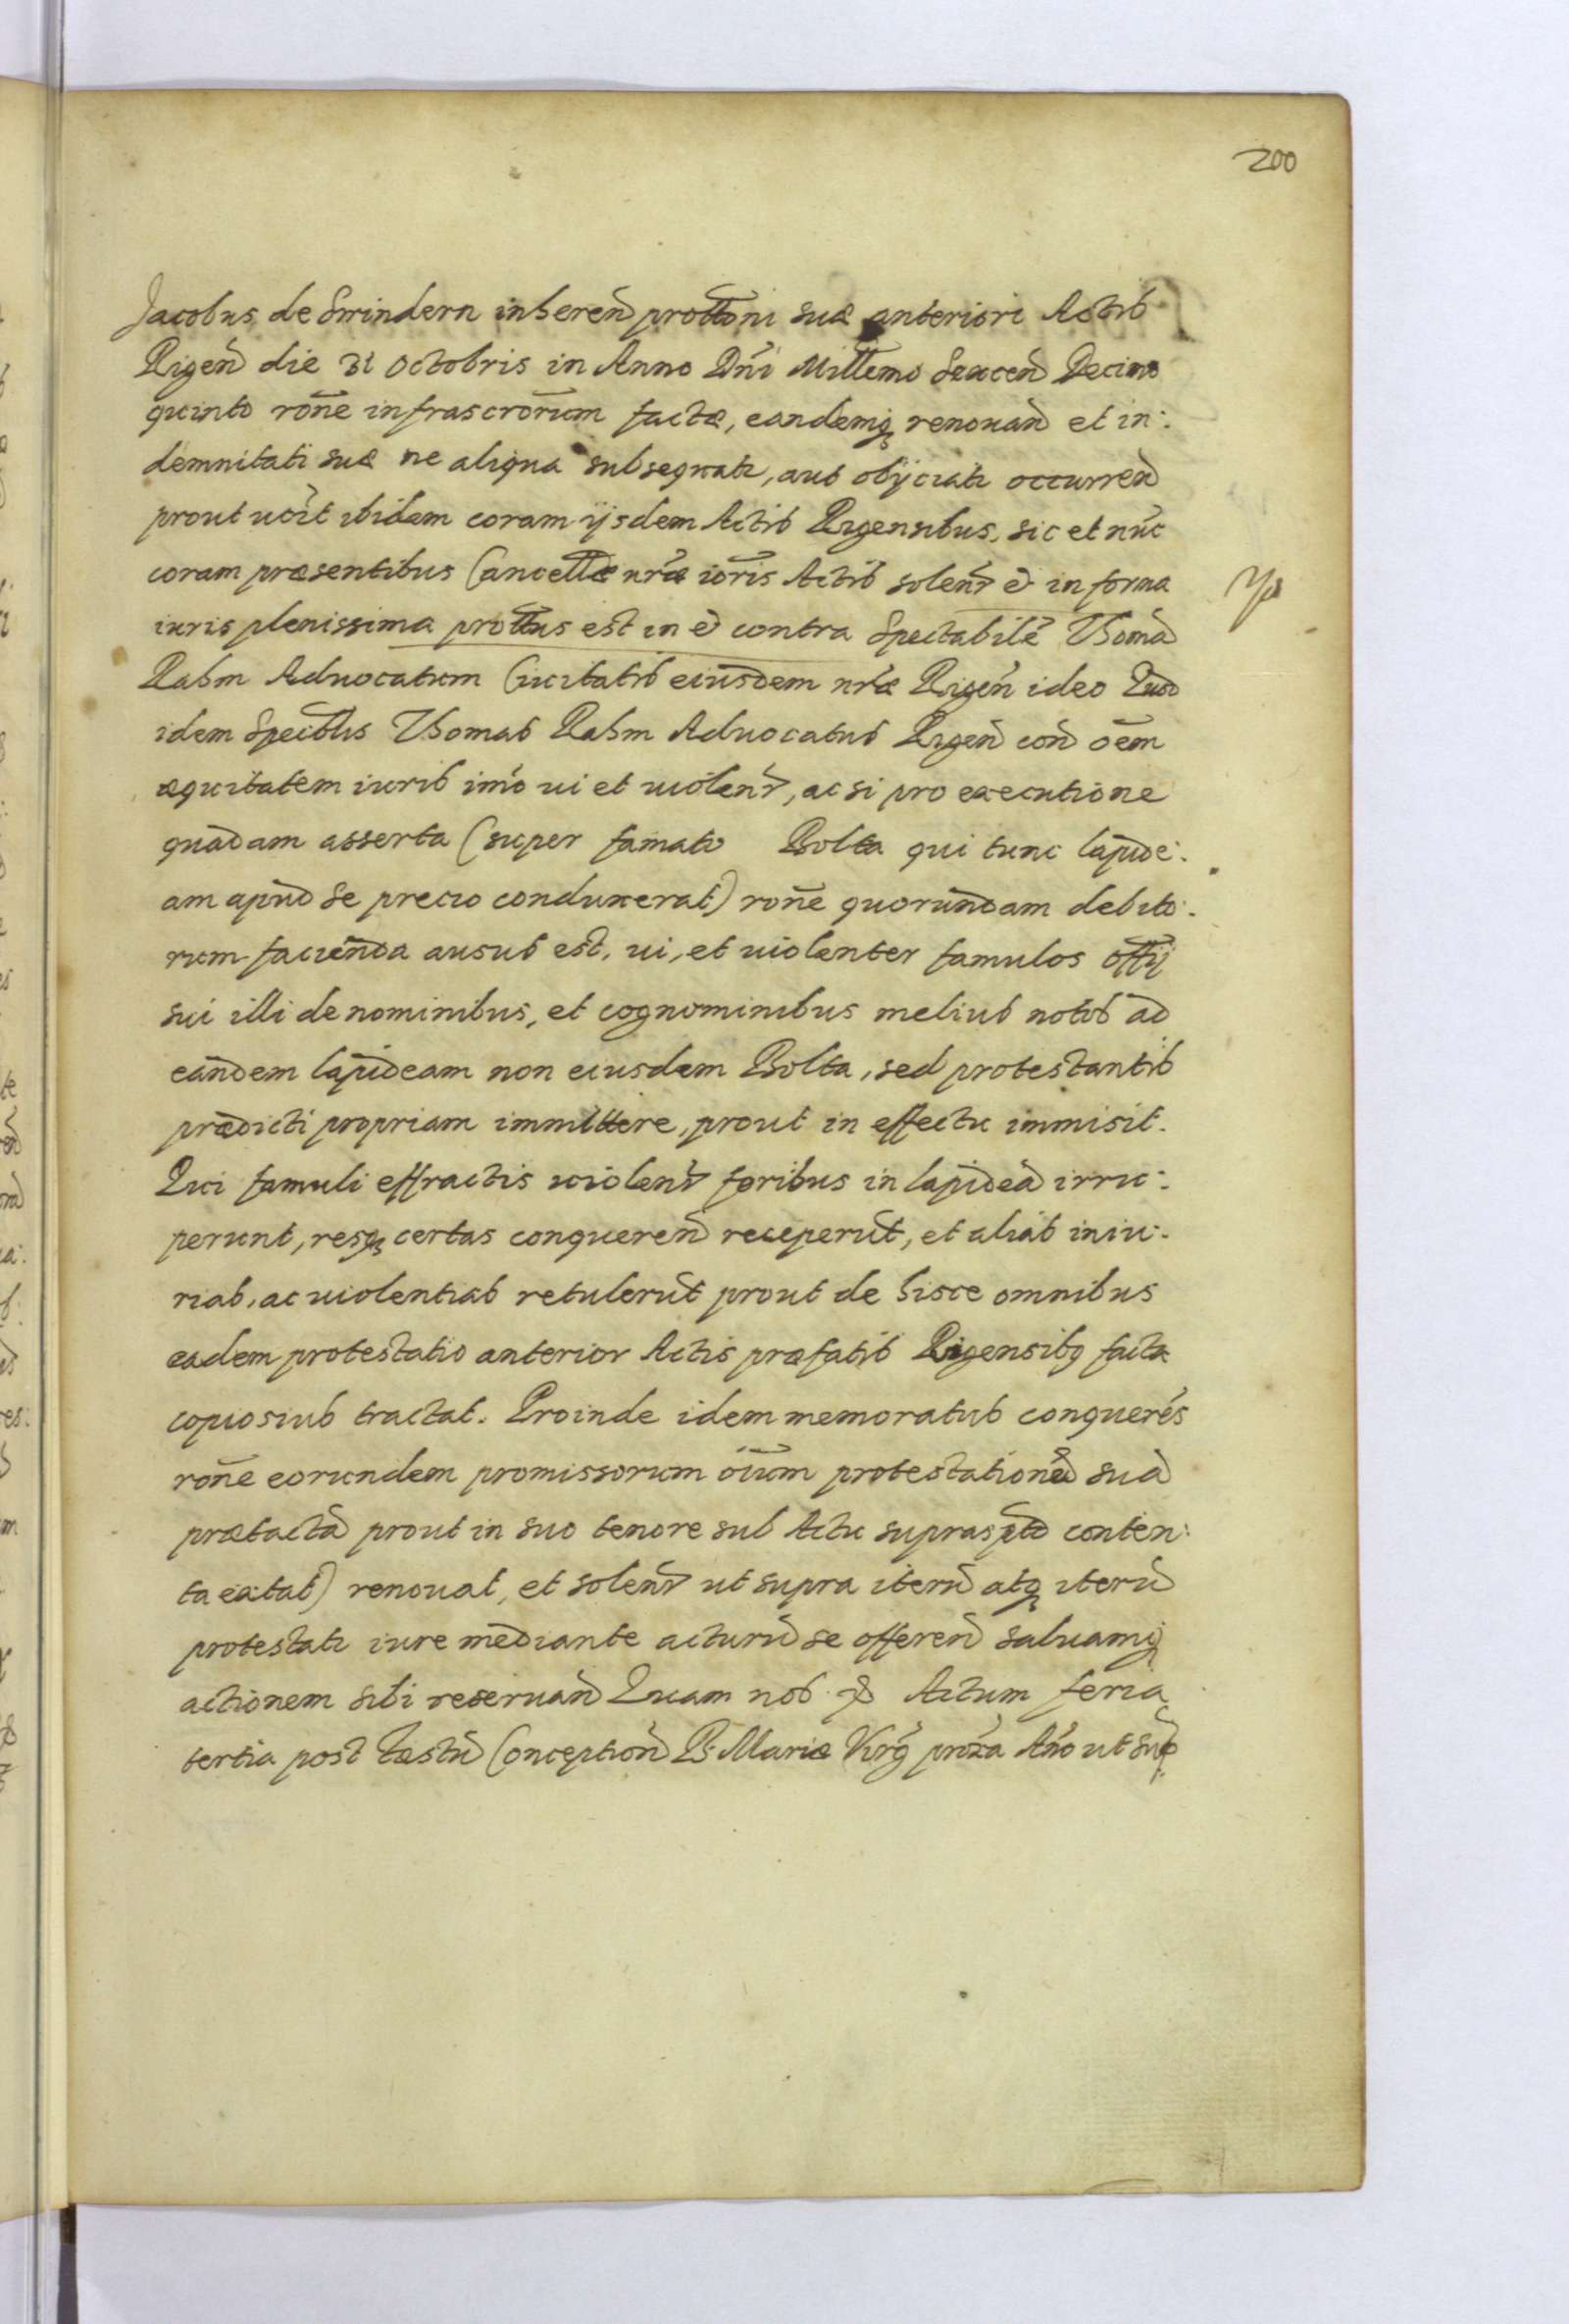 200
Jacobus de Swindern inheren̄ prottōni suæ anteriori Actis
Rigen̄ die 31 Octobris in Anno Dn̄i Millemo Sexcen̄ Decimo
quinto rōne infrascrōrum factæ, eandemq renouan̄ et in:
demnitati suæ ne aliqua subsequatr, aut obijciatr occurren̄
prout ibidem coram ijsdem Actis Rigensibus, sic et nūc
coram præsentibus Cancellæ nr̄æ iōris Actis solenr et in forma
iuris plenissima prottus est in et contra Spectabilē Thomā
Rahm Aduocatum Ciuitatis eiusdem nr̄æ Rigen̄ ideo Quod
idem Spectlis Thomas Rahm Aduocatus Rigen̄ con̄ oēm
æquitatem iuris imō ui et uiolenr, ac si pro executione
quadam asserta (super famato Bolta qui tunc lapide:
am apud se precio conduxerat) rōne quorundam debito:
rum facienda ausus est, ui, et uiolenter famulos offij
sui illi de nominibus, et cognominibus melius notos ad
eandem lapideam non eiusdem Bolta, sed protestantis
prædicti propriam immittere, prout in effectu immisit.
Qui famuli effractis uiolenr foribus in lapideā irru:
perunt, resq certas conqueren̄ receperūt, et alias iniu:
rias, ac uiolentias retulerūt prout de hisce omnibus
eadem protestatio anterior Actis præfatis Rigensibq facta
copiosius tractat. Proinde idem memoratus conquerēs
rōne eorundem promissorum ōium protestationē suā
prætactā prout in suo tenore sub Actu suprascpto conten:
ta extat) renouat, et solenr ut supra iterū atq iterū
protestatr iure mediante acturū se offeren̄ saluamq
actionem sibi reseruan̄ Quam nos Actum feria
tertia post Festū Conception̄ B: Mariæ Virg prox̄a Āno ut Sup